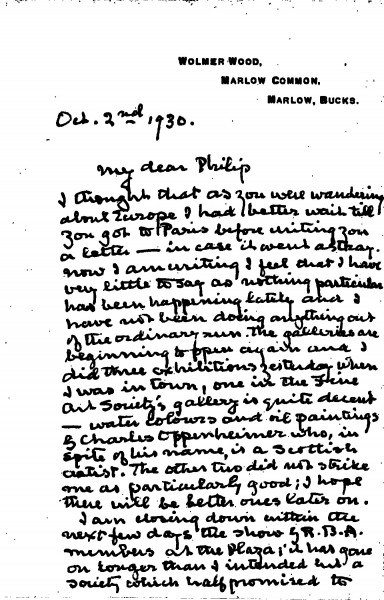 WOLMER WOOD,
MARLOW COMMON,
MARLOW, BUCKS.
Oct. 2nd 1930.
My dear Philip
I thought that as you were wandering
about Europe I had better wait till
you got to Paris before writing you
a letter — in case it went astray.
Now I am writing I feel that I have
very little to say as nothing particular
has been happening lately and I
have not been doing anything out
of the ordinary run. The galleries are
beginning to open again and I
did three exhibitions yesterday when
I was in town, one in the Fine
Art Society's gallery is quite decent
— water colours and oil paintings
by Charles Oppenheimer who, in
spite of his name, is a Scottish
artist. The other two did not strike
me as particularly good; I hope
there will be better ones later on.
I am closing down within the
next few days the show of R.B.A.
members at the Plaza; it has gone
on longer than I intended but a
society which half promised to